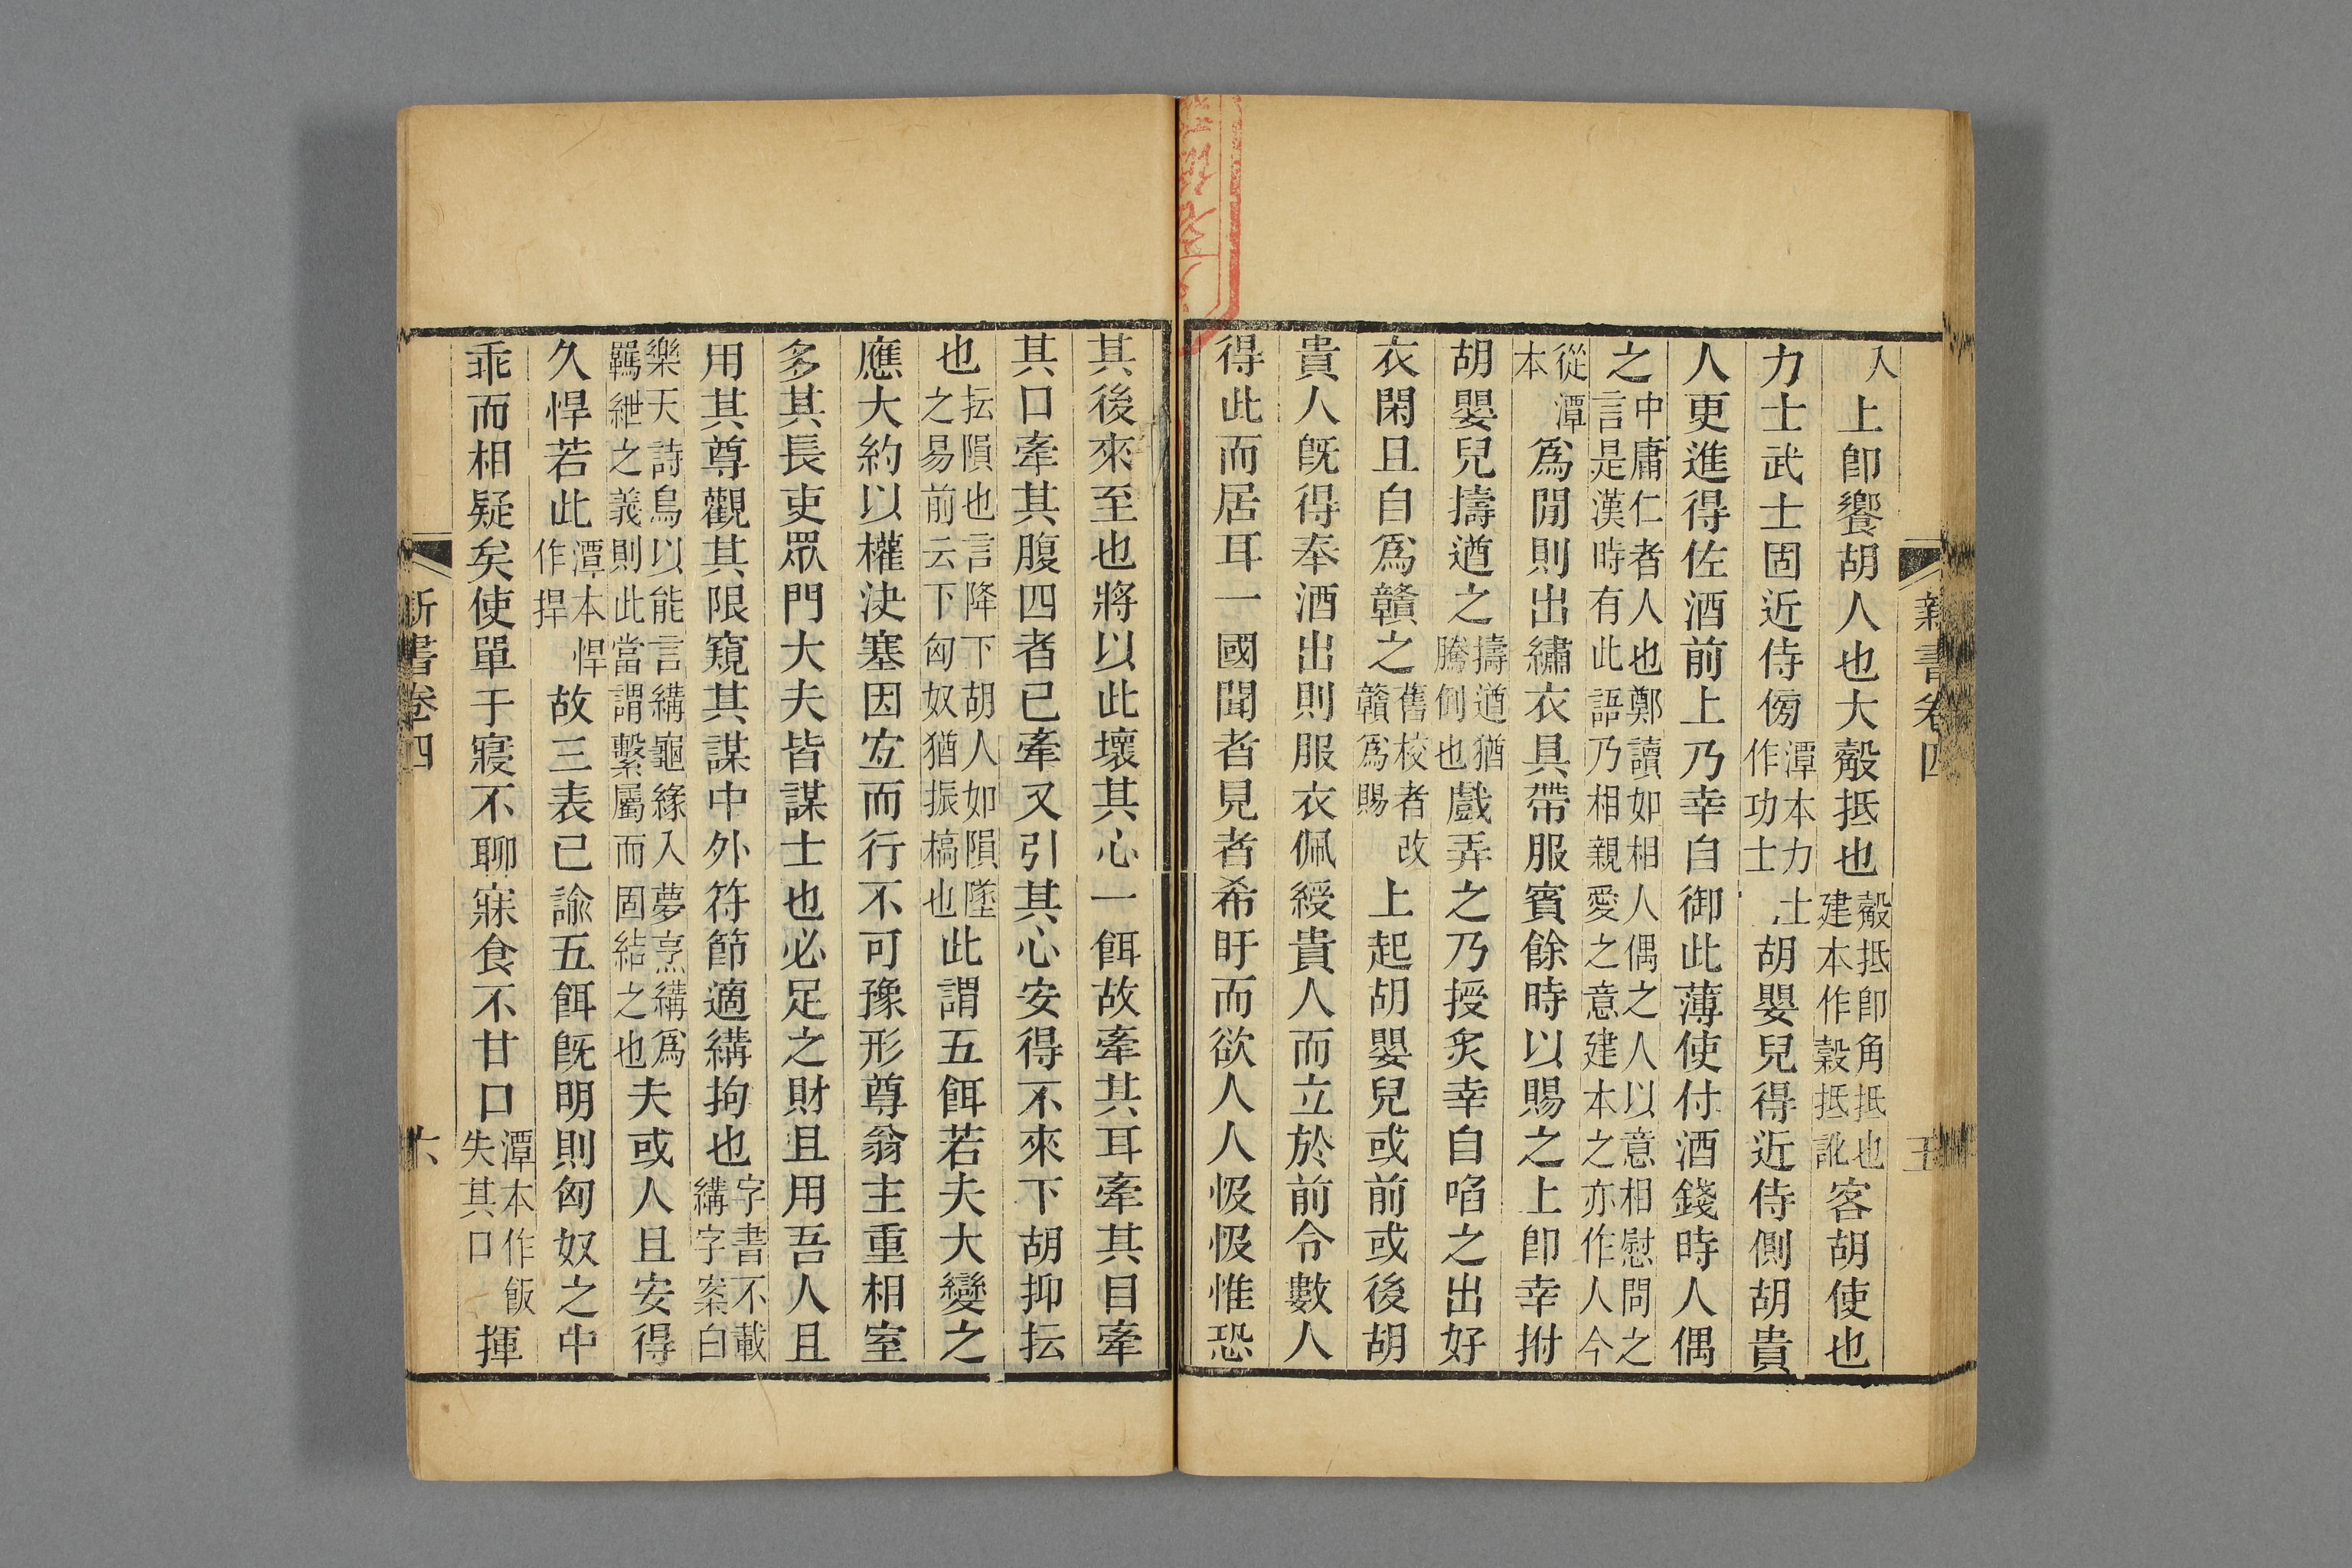 新書卷四
五
入上卽饗胡人也大觳抵也觳抵卽角抵也建本作穀抵訛客胡使也
力士武士固近侍傍潭本力士作功士胡嬰兒得近侍側胡貴
人更進得佐酒前上乃幸自御此薄使付酒錢時人偶
之中庸仁者人也鄭讀如相人偶之人以意相慰問之言是漢時有此語乃相親愛之意建本之亦作人今
從潭本爲閒則出繡衣具帶服賓餘時以賜之上卽幸拊
胡嬰兒擣遒之擣遒猶騰倒也戲弄之乃授炙幸自啗之出好
衣閑且自爲贛之舊校者改贛爲賜上起胡嬰兒或前或後胡
貴人旣得奉酒出則服衣佩綬貴人而立於前令數人
得此而居耳一國聞者見者希盱而欲人人忣忣惟恐
其後來至也將以此壞其心一餌故牽其耳牽其目牽
其口牽其腹四者已牽又引其心安得不來下胡抑抎
也抎隕也言降下胡人如隕墜之易前云下匈奴猶振槁也此謂五餌若夫大變之
應大約以權決塞因宜而行不可豫形尊翁主重相室
多其長吏眾門大夫皆謀士也必足之財且用吾人且
用其尊觀其限窺其謀中外符節適緱拘也字書不載緱字案白
樂天詩鳥以能言緱龜緣入夢烹緱爲羈紲之義則此當謂繫屬而固結之也夫或人且安得
久悍若此潭本悍作捍故三表已諭五餌旣明則匈奴之中
乖而相疑矣使單于寢不聊寐食不甘口潭本作飯失其口揮
新書卷四
六